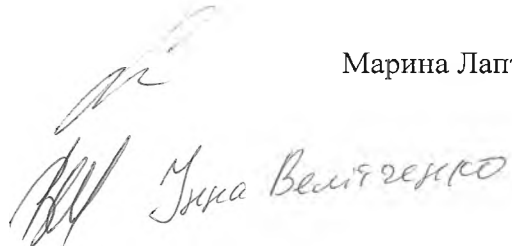 Марина Лапт
Інна Велітченко